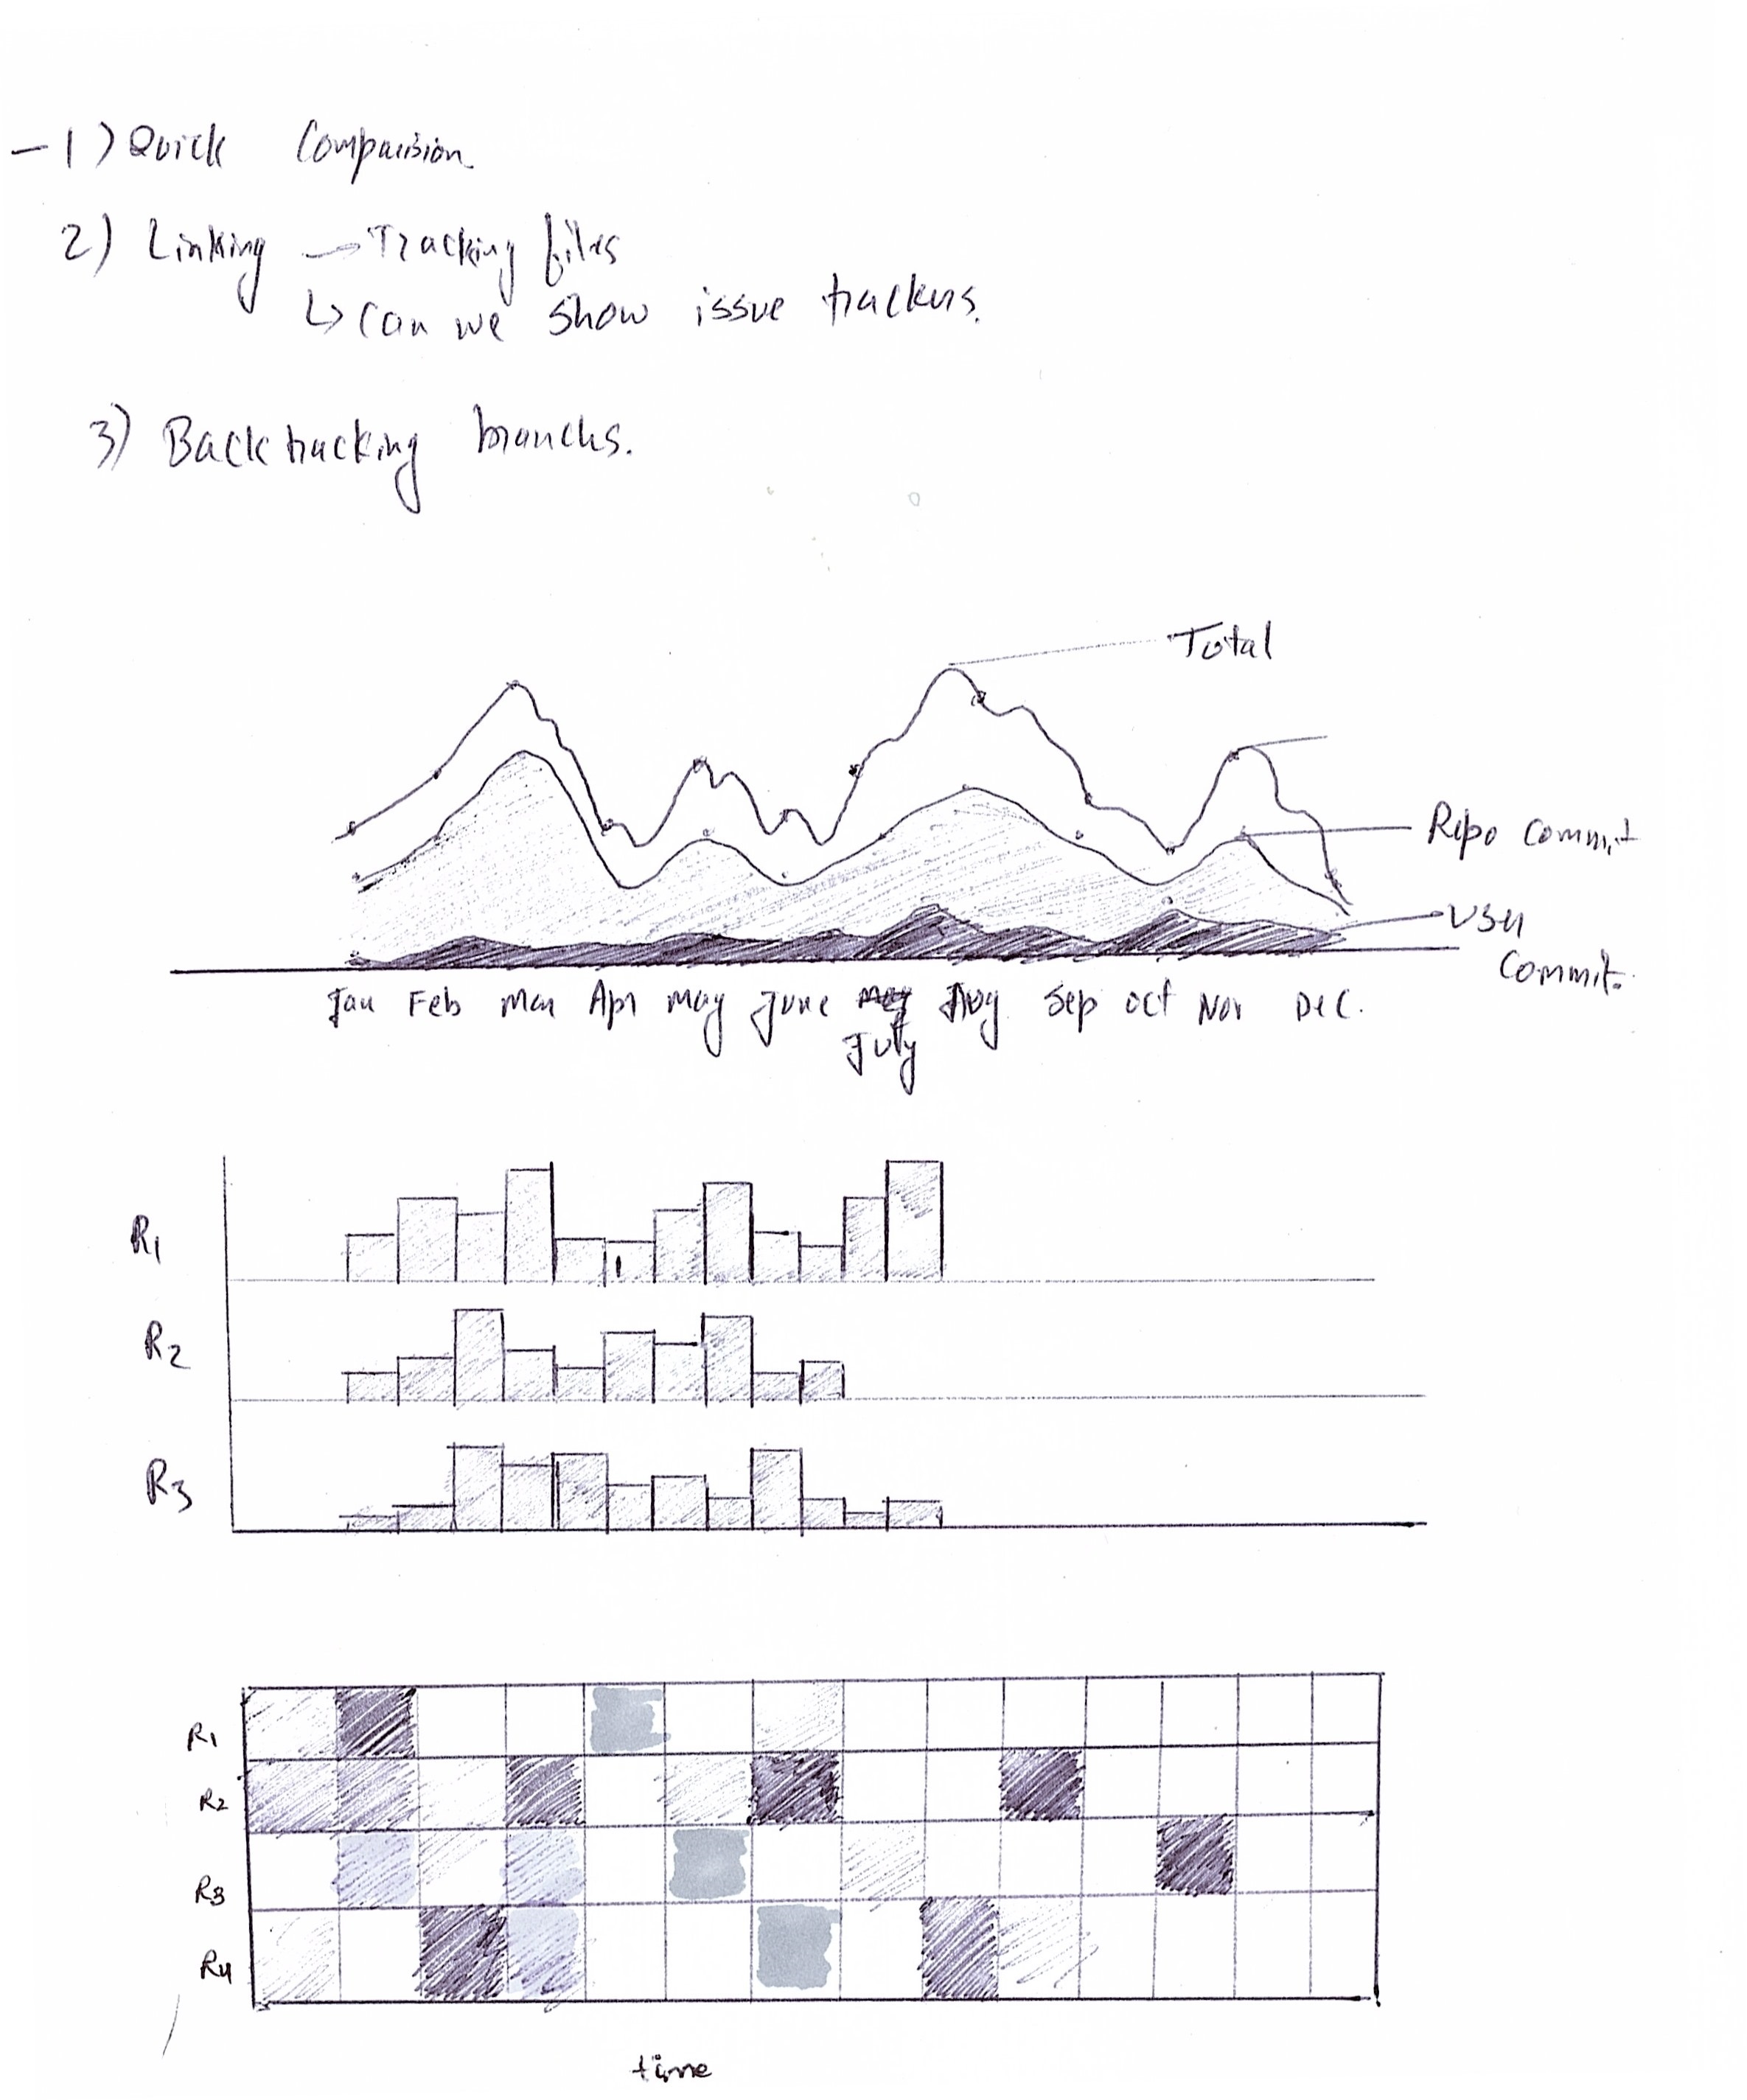 -1) Quick Comparision
2) Linking → Tracking files
↳ Can we show issue trackers.
3) Backtracking branchs.
Total
Repo Commit
User
Commit.
Jan Feb Mar Apr May June Aug Sep Oct Nov Dec.
July
R1
R2
R3
R1
R2
R3
R4
time